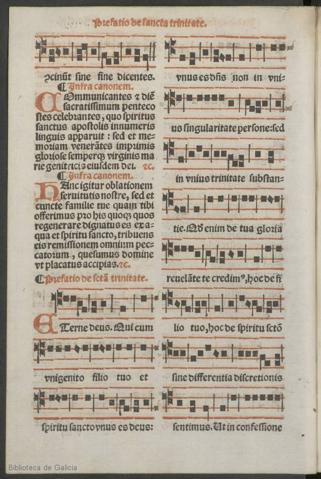 Prefatio de sancta trinitate.
ꝛcinũt sine fine dicentes.
¶ Infra canonem.
COmmunicantes ⁊ diẽ
sacratissimum penteco
stes celebrantes, quo spiritus
sanctus apostolis innumeris
linguis apparuit : sed et me-
moriam venerãtes imprimis
gloriose semperqꝫ virginis ma
rie genitrici⁹ eiusdem dei. ⁊c.
¶ Infra canonem.
HAnc igitur oblationem
seruitutis nostre, sed et
cuncte familie tue quam tibi
offerimus pro his quoqꝫ quos
regenerare dignatus es ex a-
qua et spiritu sancto, tribuens
eis remissionem omnium pec-
catorum, quesumus domine
vt placatus accipias. ⁊c.
¶ Prefatio de sctã trinitate.
ETerne deus. Qui cum
vnigenito filio tuo et
spiritu sancto vnus es deus:
vnus es dñs non in vni-
us singularitate persone: sed
in vnius trinitate substan-
tie. Nõ enim de tua gloria
reuelãte te credim⁹, hoc de fi
lio tuo, hoc de spiritu sctõ
sine differentia discretionis
sentimus. Ut in confessione
Biblioteca de Galicia